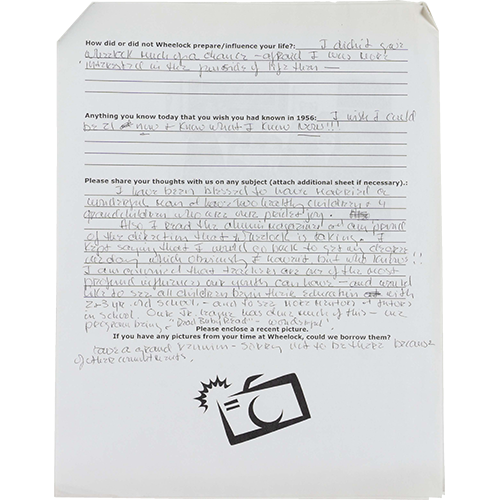 How did or did not Wheelock prepare/influence your life?: I didn't give
Wheelock much of a chance - afraid I was more
interested in the pursuit of life then -
Anything you know today that you wish you had known in 1956: I wish I could
be 21 now & know what I know Now!!!
Please share your thoughts with us on any subject (attach additional sheet if necessary).:
I have been blessed to have married a
wonderful man & have two healthy children & 4
grandchildren who are our pride & joy.
Also I read the alumni magazine & am proud
of the direction that Wheelock is taking. I
kept saying that I would go back to get my degree
one day which obviously I haven't but who knows!!
I am convinced that teachers are one of the most
profound influences our youth can have - and would
like to see all children begin their education with
2 & 3 yr old school - and to see more mentors & tutors
in school. Our Jr. League has done much of this - one
program being "Read Baby Read" - wonderful!
Please enclose a recent picture.
If you have any pictures from your time at Wheelock, could we borrow them?
Have a grand reunion - sorry not to be there because
of other commitments.